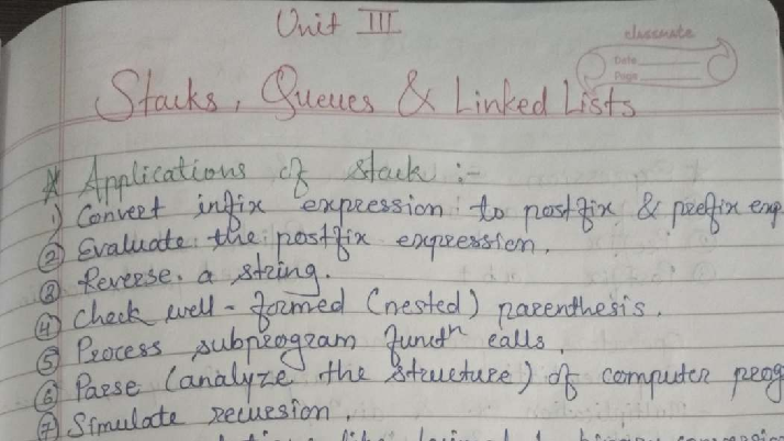 Unit III
classmate
Date
Page
Stacks, Queues & Linked Lists
* Applications of stack :-
1) Convert infix expression to postfix & prefix exp
② Evaluate the postfix expression.
③ Reverse a string.
④ Check well-formed (nested) parenthesis.
⑤ Process subprogram functn calls.
⑥ Parse (analyze the structure) of computer prog
⑦ Simulate recursion.